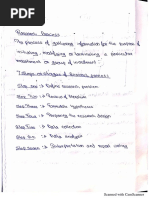 Research Business
The process of gathering information for the purpose of
initiating, modifying or terminating a particular
investment or group of investment.
Stages or stages of Research process:
Step one :- Define research problem
Step Two :- Review of literature
Step Three :- Formulate hypothesis
Step Four :- Preparing the research design
Step Five :- Data collection
Step Six :- Data analysis
Step Seven :- Interpretation and report writing
Scanned with CamScanner